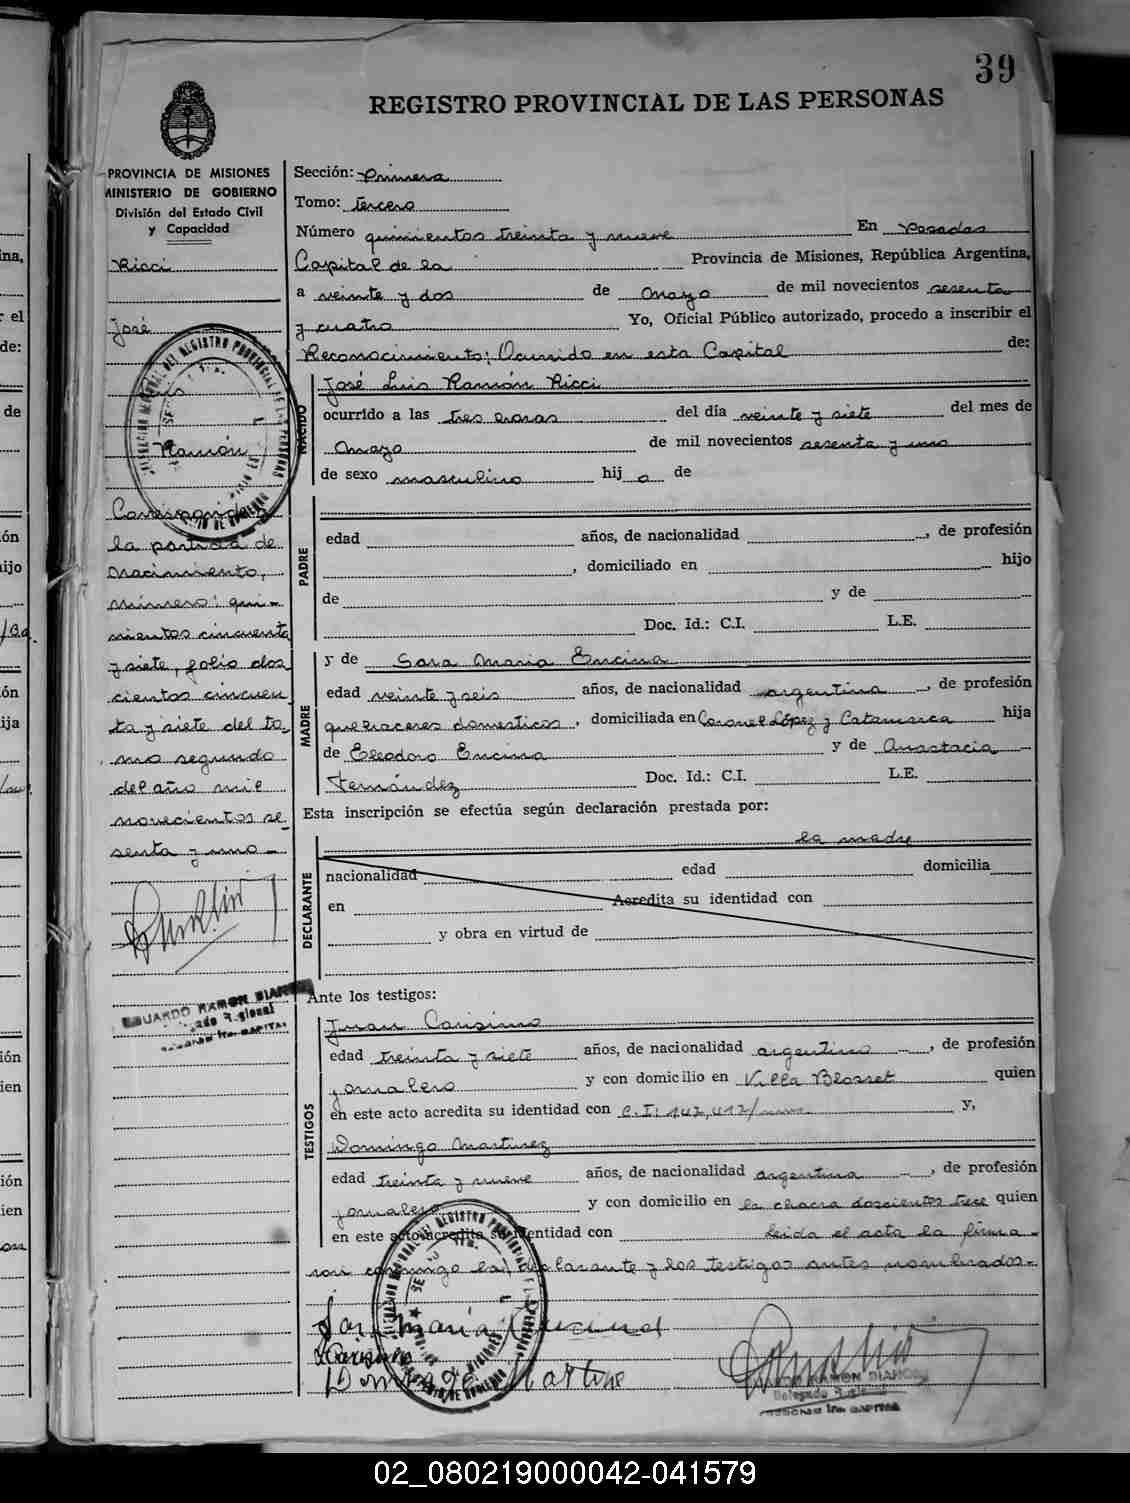 39
REGISTRO PROVINCIAL DE LAS PERSONAS
PROVINCIA DE MISIONES
MINISTERIO DE GOBIERNO
División del Estado Civil
y Capacidad
Ricci
José
Luis
Ramón
Corresponde a
la partida de
nacimiento,
número: qui-
nientos cincuenta
y siete, folio dos
cientos cincuen
ta y siete del to-
mo segundo
del año mil
novecientos se-
senta y uno-
EDUARDO RAMON BIANCHI
Delegado Regional
Sección: Primera
Tomo: tercero
Número quinientos treinta y nueve En Posadas
Capital de la Provincia de Misiones, República Argentina,
a veinte y dos de Mayo de mil novecientos sesenta
y cuatro Yo, Oficial Público autorizado, procedo a inscribir el
Reconocimiento; Ocurrido en esta Capital de:
NACIDO
José Luis Ramón Ricci
ocurrido a las tres horas del día veinte y siete del mes de
Mayo de mil novecientos sesenta y uno
de sexo masculino hij o de
PADRE
edad años, de nacionalidad , de profesión
, domiciliado en hijo
de y de
Doc. Id.: C.I. L.E.
MADRE
y de Sara Maria Encina
edad veinte y seis años, de nacionalidad argentina , de profesión
quehaceres domesticos , domiciliada en Coronel López y Catamarca hija
de Eleodoro Encina y de Anastacia
Fernández Doc. Id.: C.I. L.E.
Esta inscripción se efectúa según declaración prestada por:
la madre
DECLARANTE
nacionalidad edad domicilia
en Acredita su identidad con
y obra en virtud de
Ante los testigos:
TESTIGOS
Juan Carisimo
edad treinta y siete años, de nacionalidad argentino , de profesión
jornalero y con domicilio en Villa Blosset quien
en este acto acredita su identidad con C.I: y,
Domingo Martinez
edad treinta y nueve años, de nacionalidad argentina , de profesión
jornalero y con domicilio en la chacra doscientos trece quien
en este acto acredita su identidad con leida el acta la firma-
ron conmigo la declarante y los testigos antes nombrados-
Sara María Encina
Carisimo
Domingo Martinez
RAMON BIANCHI
Delegado Regional
02_080219000042-041579